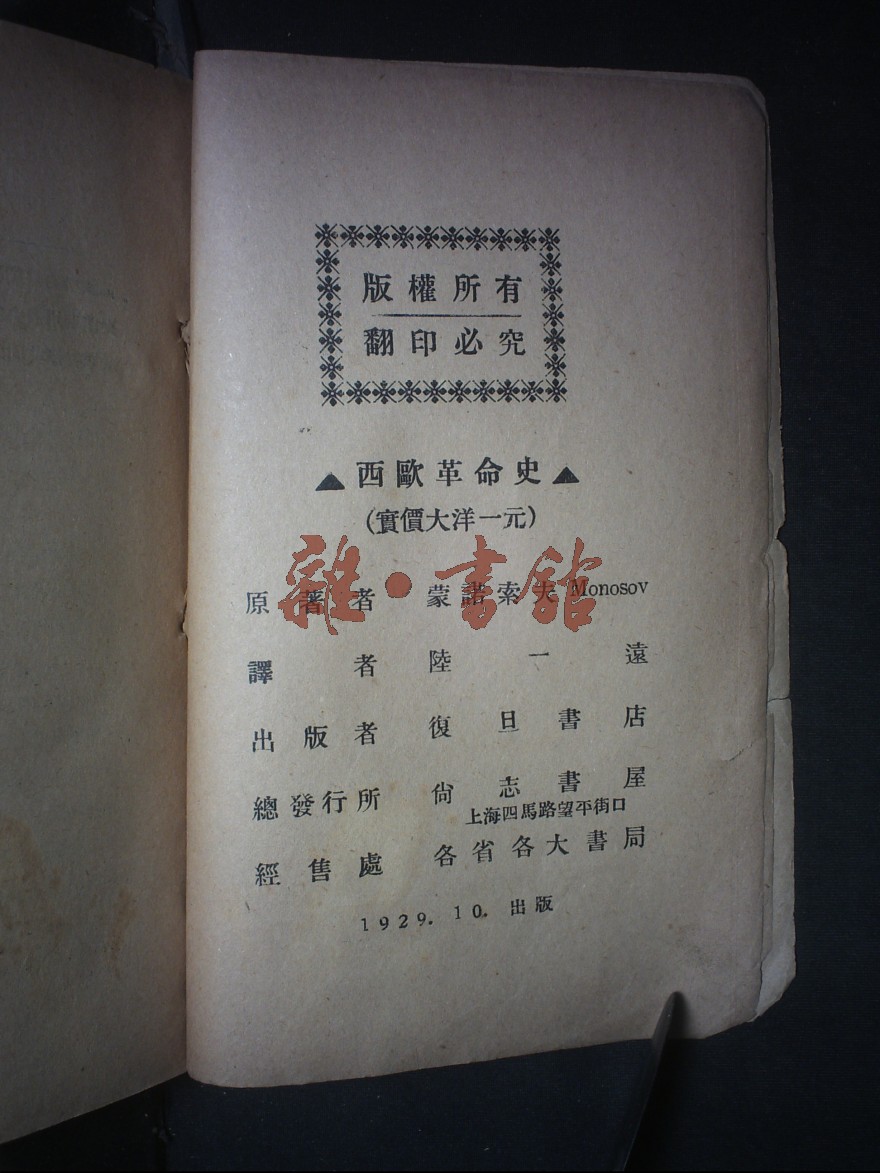 版權所有
翻印必究
▲西歐革命史▲
(實價大洋一元)
原著者 蒙諾索夫 Monosov
譯者 陸一遠
出版者 復旦書店
總發行所 尙志書屋
上海四馬路望平街口
經售處 各省各大書局
1929. 10. 出版
雜·書館